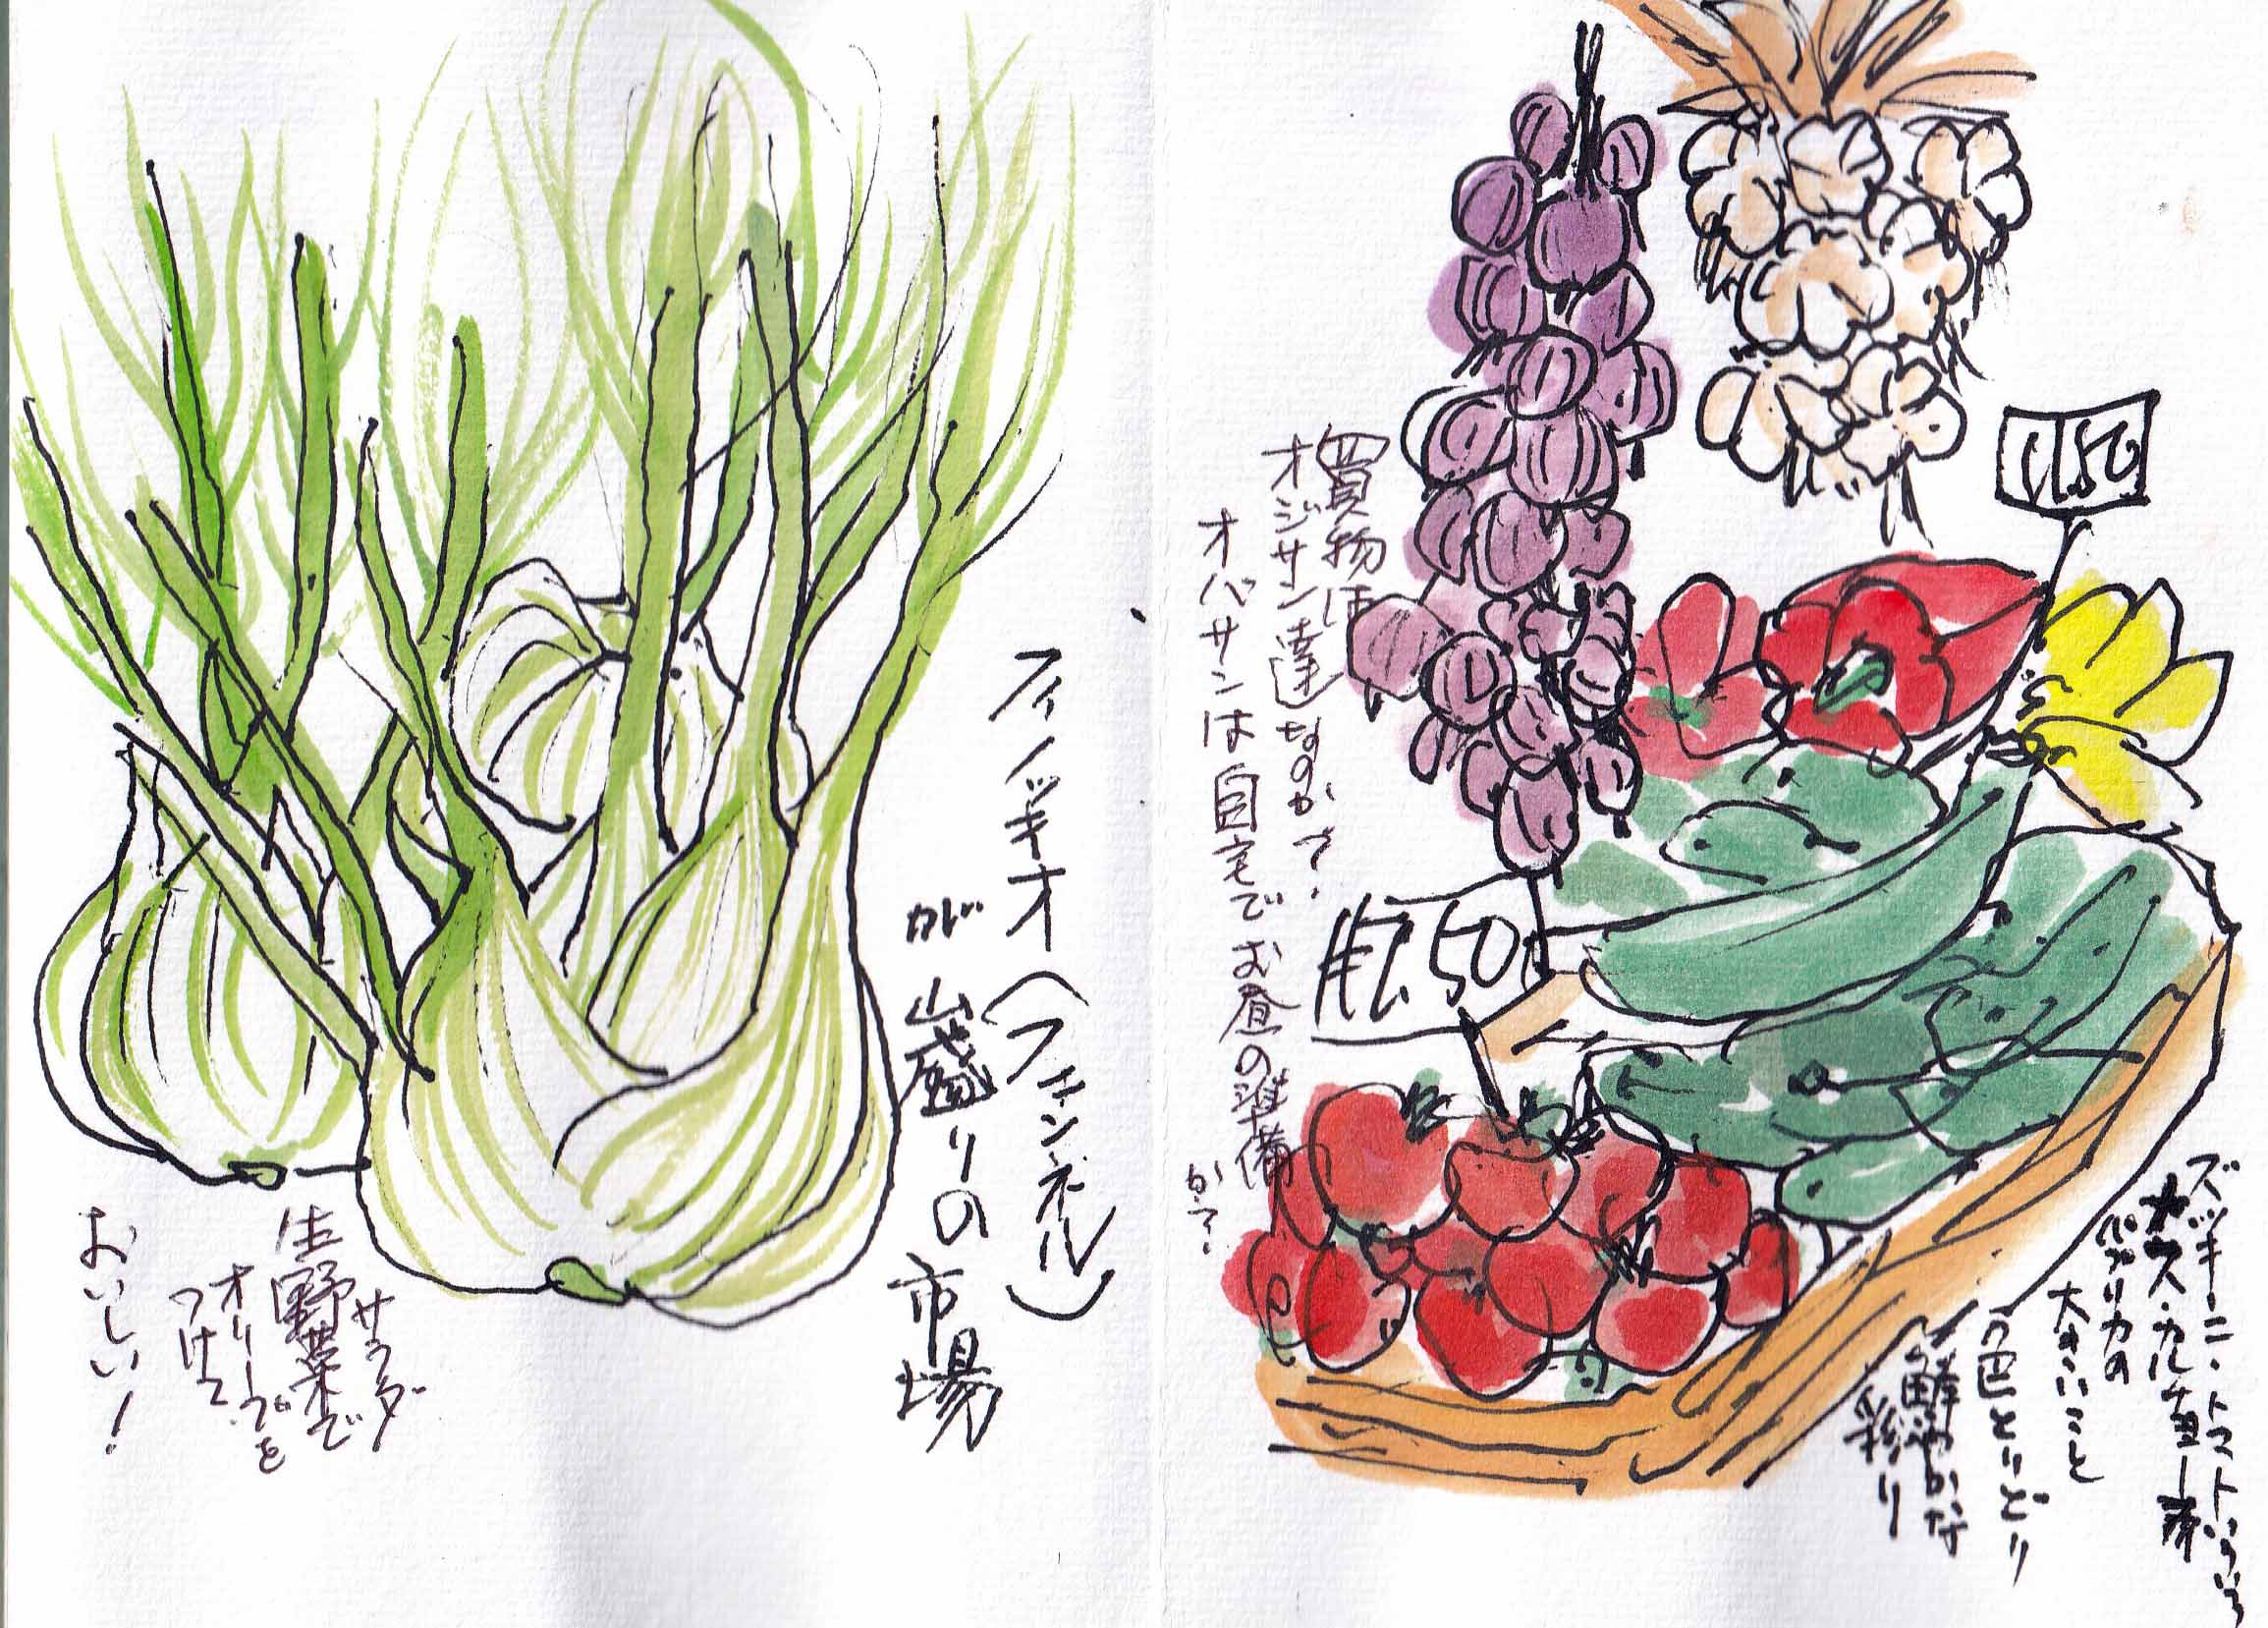 ズッキーニ・トマトいろいろ
ナス・カルチョーネ
パプリカの
大きいこと
色とりどり
鮮やかな
彩り
買物は
オジサン達なのか?・
オバサンは自宅でお昼の準備
か?・
1.50
1.50
フィノッキオ(フェンネル)
が山盛りの市場
サラダ
生野菜で
オリーブを
つけて
おいしい!